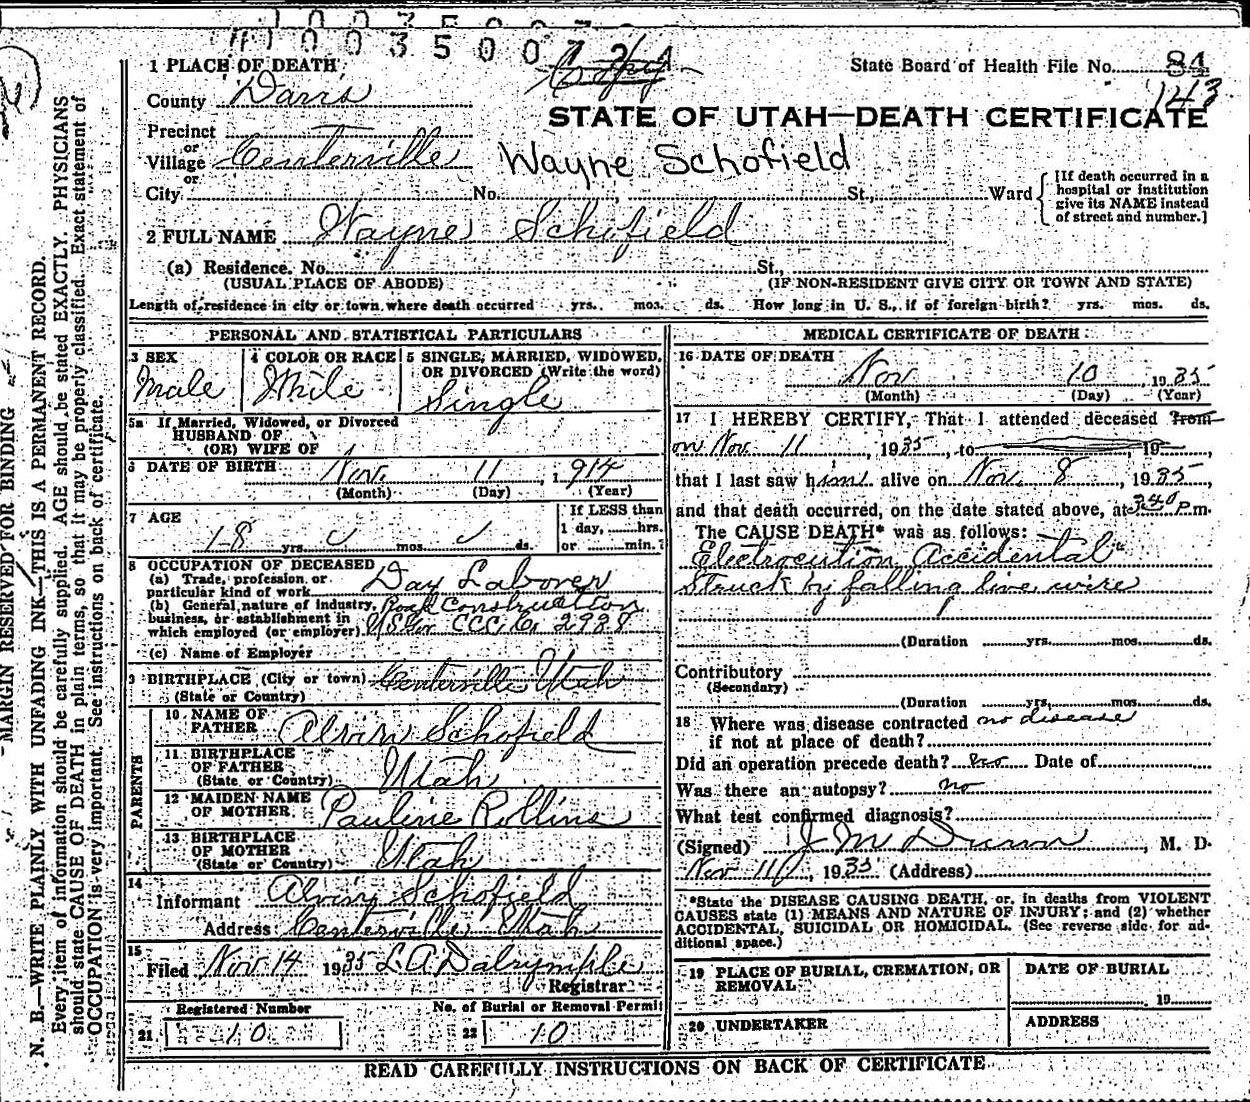 1003500
Copy
State Board of Health File No. 84
143
1 PLACE OF DEATH
County Davis
STATE OF UTAH—DEATH CERTIFICATE
Precinct
or
Village Centerville
Wayne Schofield
or
City No. St., Ward
[If death occurred in a
hospital or institution
give its NAME instead
of street and number.]
2 FULL NAME Wayne Schofield
(a) Residence. No. St.,
(USUAL PLACE OF ABODE) (IF NON-RESIDENT GIVE CITY OR TOWN AND STATE)
Length of residence in city or town where death occurred yrs. mos. ds. How long in U. S., if of foreign birth? yrs. mos. ds.
PERSONAL AND STATISTICAL PARTICULARS
3 SEX
Male
4 COLOR OR RACE
White
5 SINGLE, MARRIED, WIDOWED,
OR DIVORCED (Write the word)
Single
5a If Married, Widowed, or Divorced
HUSBAND OF
(OR) WIFE OF
6 DATE OF BIRTH Nov. 11, 1914
(Month) (Day) (Year)
7 AGE
18 yrs. mos. ds.
If LESS than
1 day, hrs.
or min.?
8 OCCUPATION OF DECEASED
(a) Trade, profession or
particular kind of work Day Laborer
(b) General nature of industry, Road Construction
business, or establishment in
which employed (or employer) CCC Co 2938
(c) Name of Employer
9 BIRTHPLACE (City or town) Centerville Utah
(State or Country)
PARENTS
10 NAME OF
FATHER Alvin Schofield
11 BIRTHPLACE
OF FATHER
(State or Country) Utah
12 MAIDEN NAME
OF MOTHER Pauline Rollins
13 BIRTHPLACE
OF MOTHER
(State or Country) Utah
14
Informant Alvin Schofield
Address Centerville Utah
15
Filed Nov 14 1935 L. A. Dalrymple
Registrar
Registered Number
21 10
No. of Burial or Removal Permit
22 10
MEDICAL CERTIFICATE OF DEATH
16 DATE OF DEATH
Nov 10, 1935
(Month) (Day) (Year)
17 I HEREBY CERTIFY, That I attended deceased from
on Nov. 11, 1935, to 19,
that I last saw him alive on Nov. 8, 1935,
and that death occurred, on the date stated above, at 340 P.m.
The CAUSE DEATH* was as follows:
Electrocution Accidental
Struck by falling live wire
(Duration yrs. mos. ds.
Contributory
(Secondary)
(Duration yrs. mos. ds.
18 Where was disease contracted no disease
if not at place of death?
Did an operation precede death? no Date of
Was there an autopsy? no
What test confirmed diagnosis?
(Signed) J M Dunn, M. D.
Nov 11, 1935 (Address)
*State the DISEASE CAUSING DEATH, or, in deaths from VIOLENT
CAUSES state (1) MEANS AND NATURE OF INJURY; and (2) whether
ACCIDENTAL, SUICIDAL OR HOMICIDAL. (See reverse side for ad-
ditional space.)
19 PLACE OF BURIAL, CREMATION, OR
REMOVAL
DATE OF BURIAL
19
20 UNDERTAKER
ADDRESS
READ CAREFULLY INSTRUCTIONS ON BACK OF CERTIFICATE
MARGIN RESERVED FOR BINDING
N. B.—WRITE PLAINLY WITH UNFADING INK—THIS IS A PERMANENT RECORD.
Every item of information should be carefully supplied. AGE should be stated EXACTLY. PHYSICIANS
should state CAUSE OF DEATH in plain terms, so that it may be properly classified. Exact statement of
OCCUPATION is very important. See instructions on back of certificate.